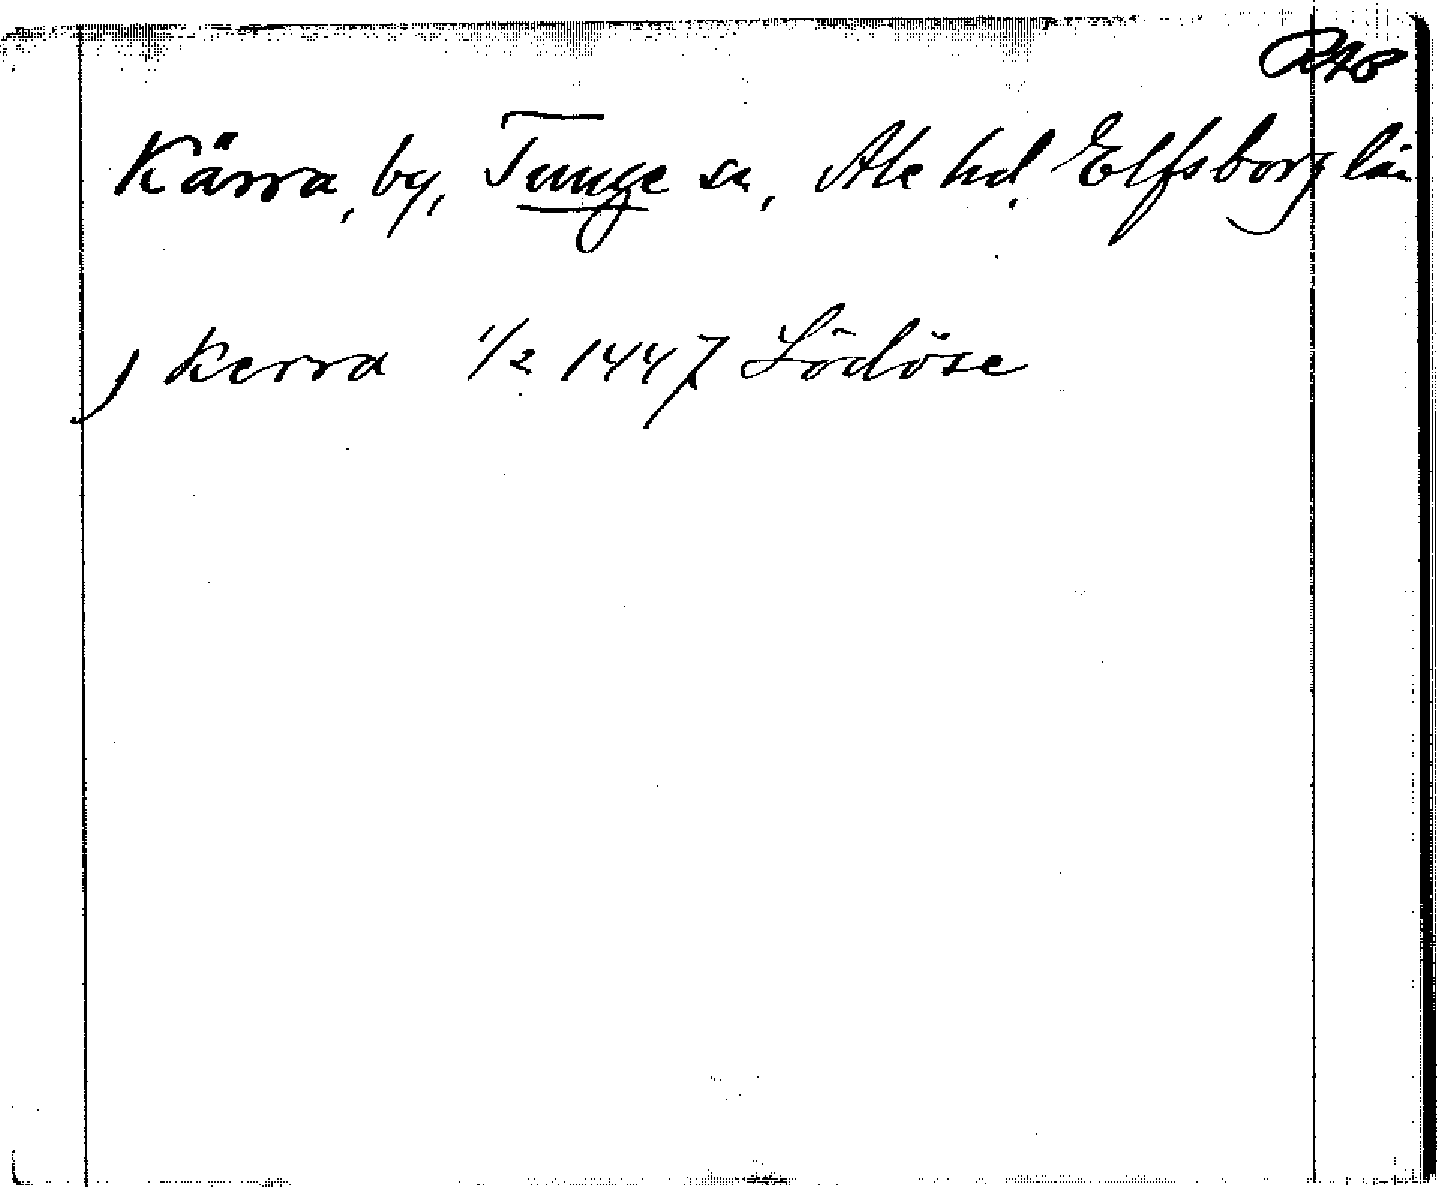 Kärra, by, Tunge sn, Ale hd. Elfsborg län
j kerra 1/2 1447 Lödöse